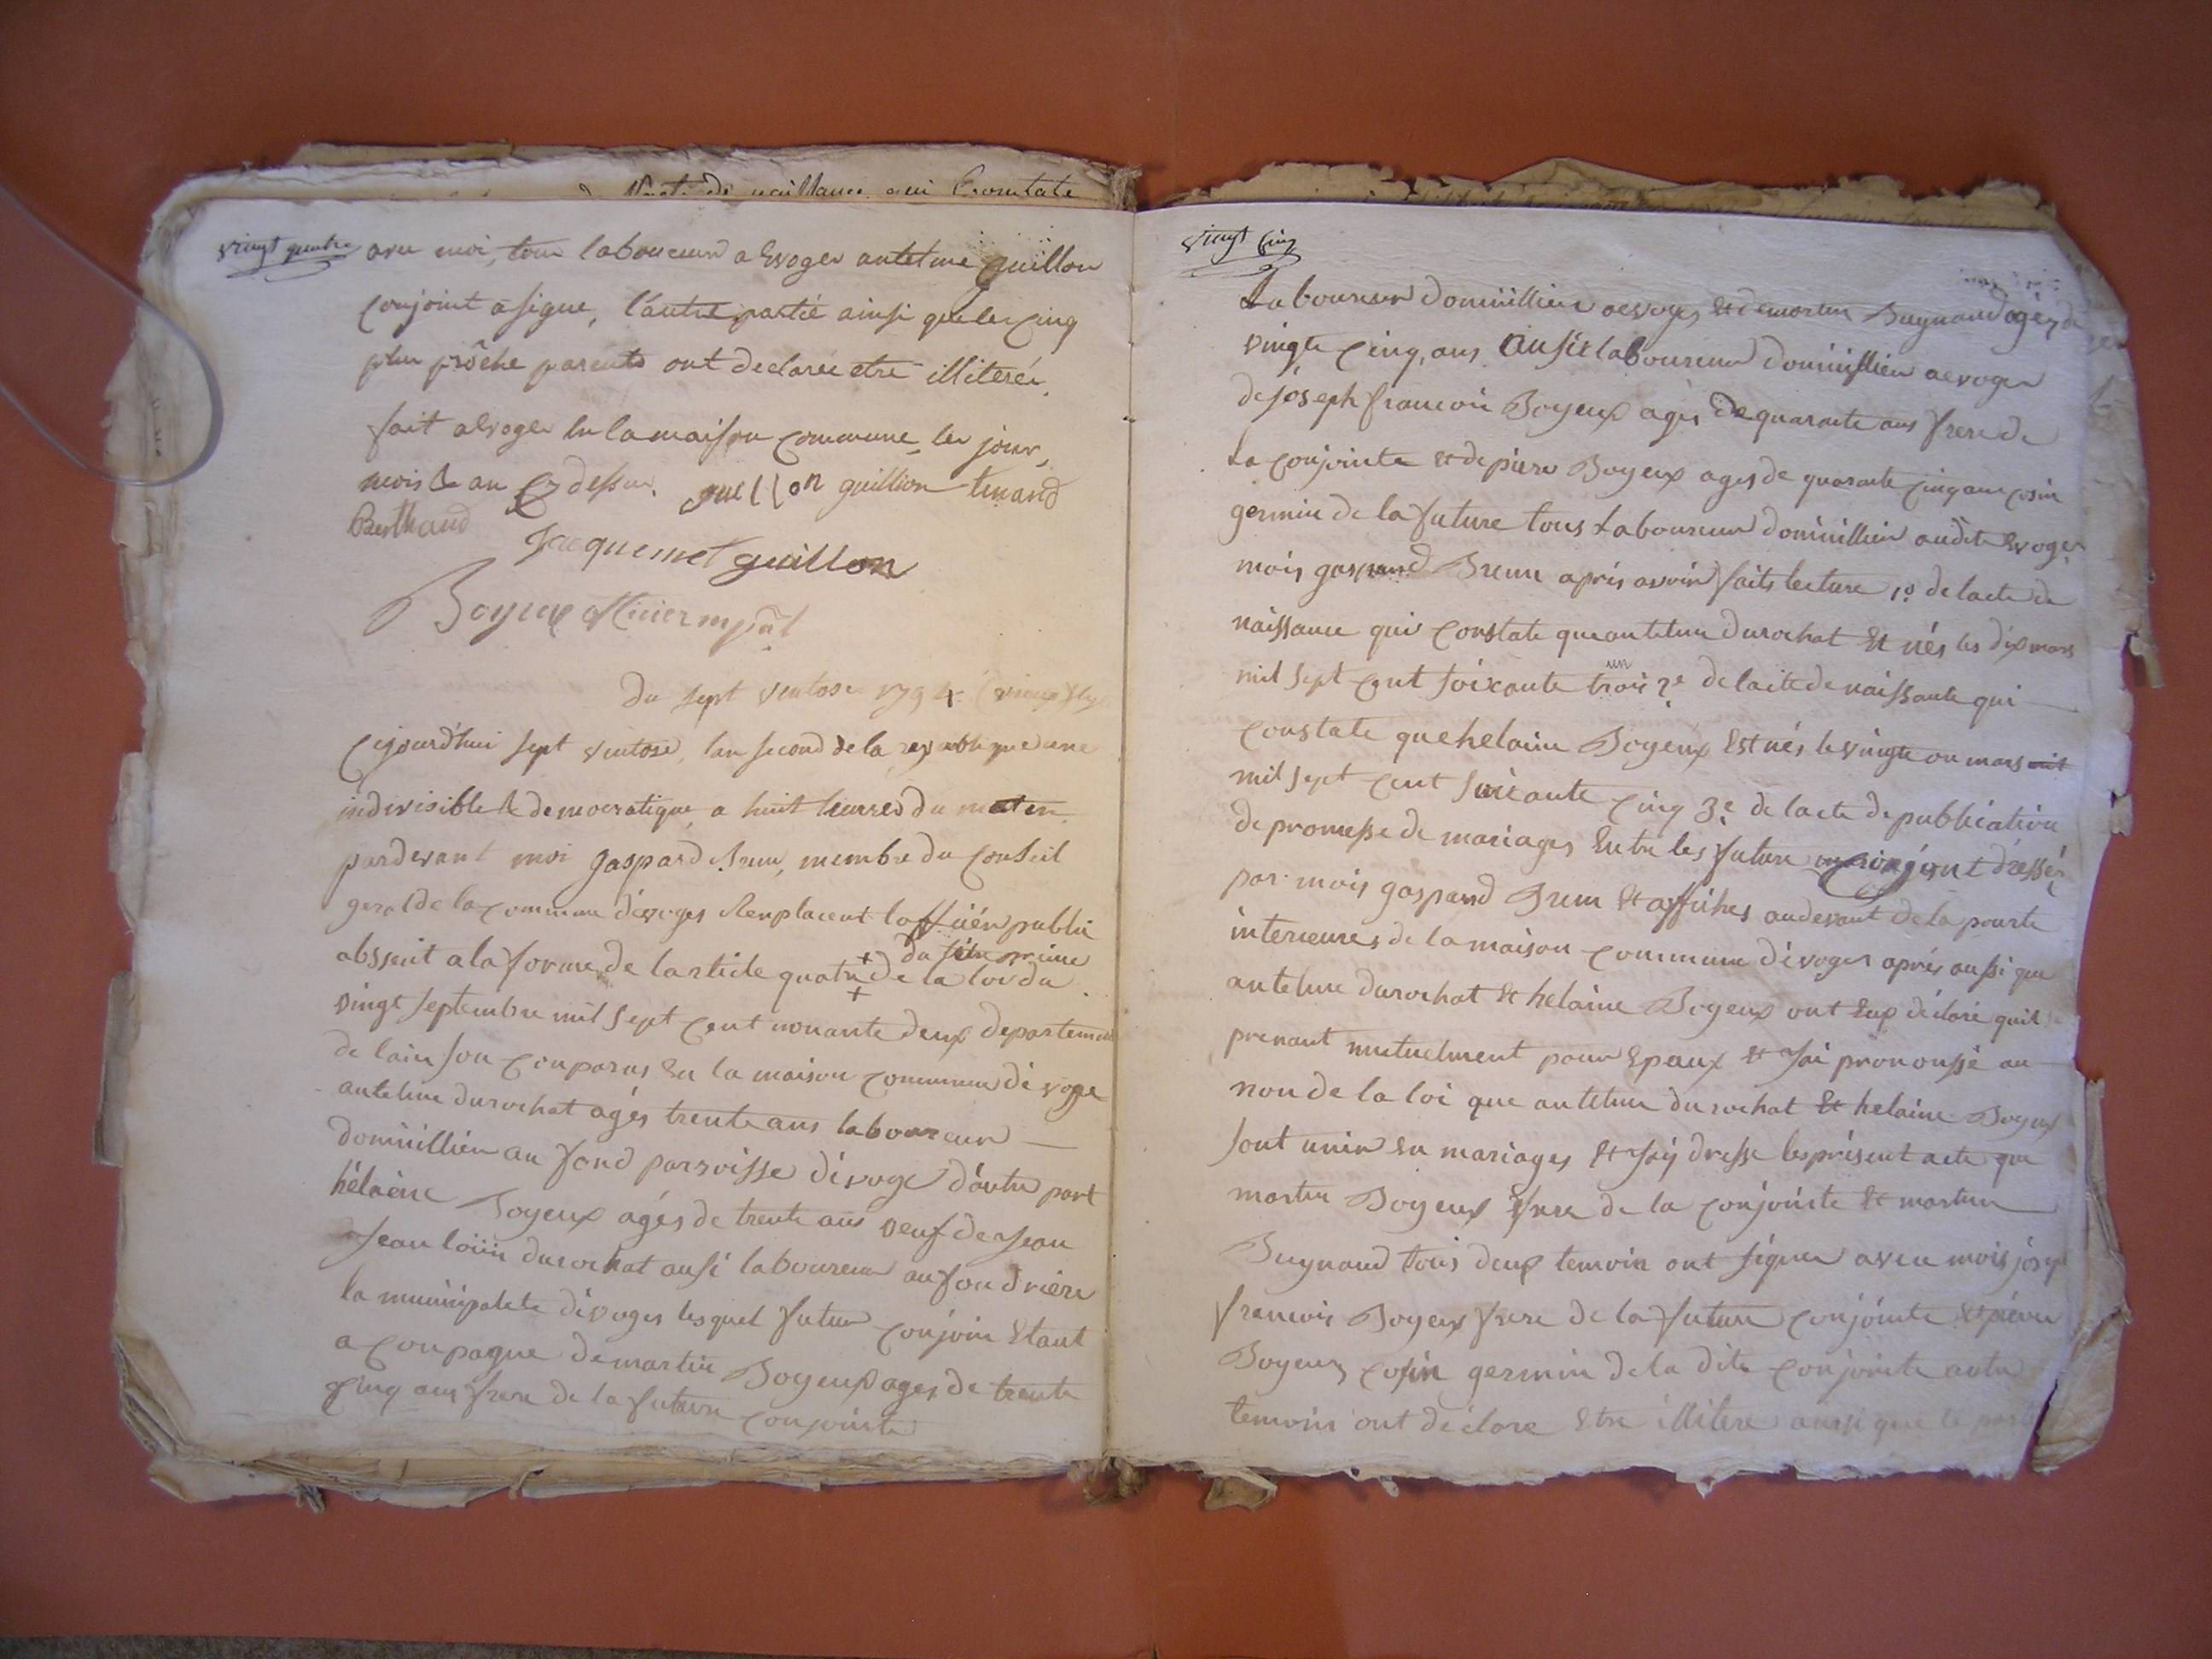 vingt quatre
avec moi, tous laboureur a Evoges antelme guillon
conjoint a signe, l'autre partie ainsi que les cinq
plus prôche parents ont declarée etre illiterée,
fait a Evoges en la maison commune, les jour,
mois & an cy dessus. guillon guillion tenand
Berthaud Jacquemet guillon
Boyeux officier mpal
du sept ventose 1794
cejourd'hui sept ventose, l'an second de la republique une
indivisible & democratique, a huit heures du maten
pardevant moi gaspard Brun, membre du conseil
geral de la commune d'evoges Remplacent loffisién public
du titre prime
abssent a la forme de larticle quatre + de la loi du
vingt septembre mil sept cent nonante deux departement
de lain son conparus En la maison commune d'évoge
antelme durochat agés trente ans laboureur
dominillien au fond parroisse d'évoge d'autre part
hélaène Boyeux agés de trente ans veuf de Jean
Jean loüis durochat ausi laboureur au fond rière
la municipalete d'evoges lesquel futur conjoin Etant
aconpagne de martin Boyeux ages de trente
cinq ans frere de la future conjointe
vingt cinq
Laboureur dominillien aevoges et de martin Buynand agés de
vingte cinq, ans Ausit laboureur dominillien aevoges
de jóseph francois Boyeux agés de quarante ans frere de
La conjointe et de piere Boyeux ages de quarante cinq ans cosin
germin de la future tous Laboureur dominillien audite Evoges
mois gaspard Brun aprés avoir faits lecture 1º de lacte de
naissance qui constate que antelme durochat Et nés les dix mars
un
mil sept cent soixante trois 2e de lacte de naissante qui
constate que helaine Boyeux Est nés le vingte on mars mil
mil sept cent soixante cinq 3e de lacte de publication
de promesse de mariages Entre les future conjoint dressér
par mois gaspard Brun Et affiches audevant de la pourte
interieures de la maison commune d'evoges aprés aussi que
antelme durochat Et helaine Boyeux ont Eux déclaré quil se
prenant mutuelment pour Epoux et Jai pronoussé au
non de la loi que antelme durochat Et helaine Boyeux
sont unir En mariages Et Jay dresse les présent acte que
martin Boyeux frere de la conjointe Et martin
Buynand tous deux temoin ont signer avec mois jósep
francois Boyeux frere de la future conjointe Et pierre
Boyeux cosin germin de la dite conjointe autre
temoin ont déclare Etre illitere aussi que le